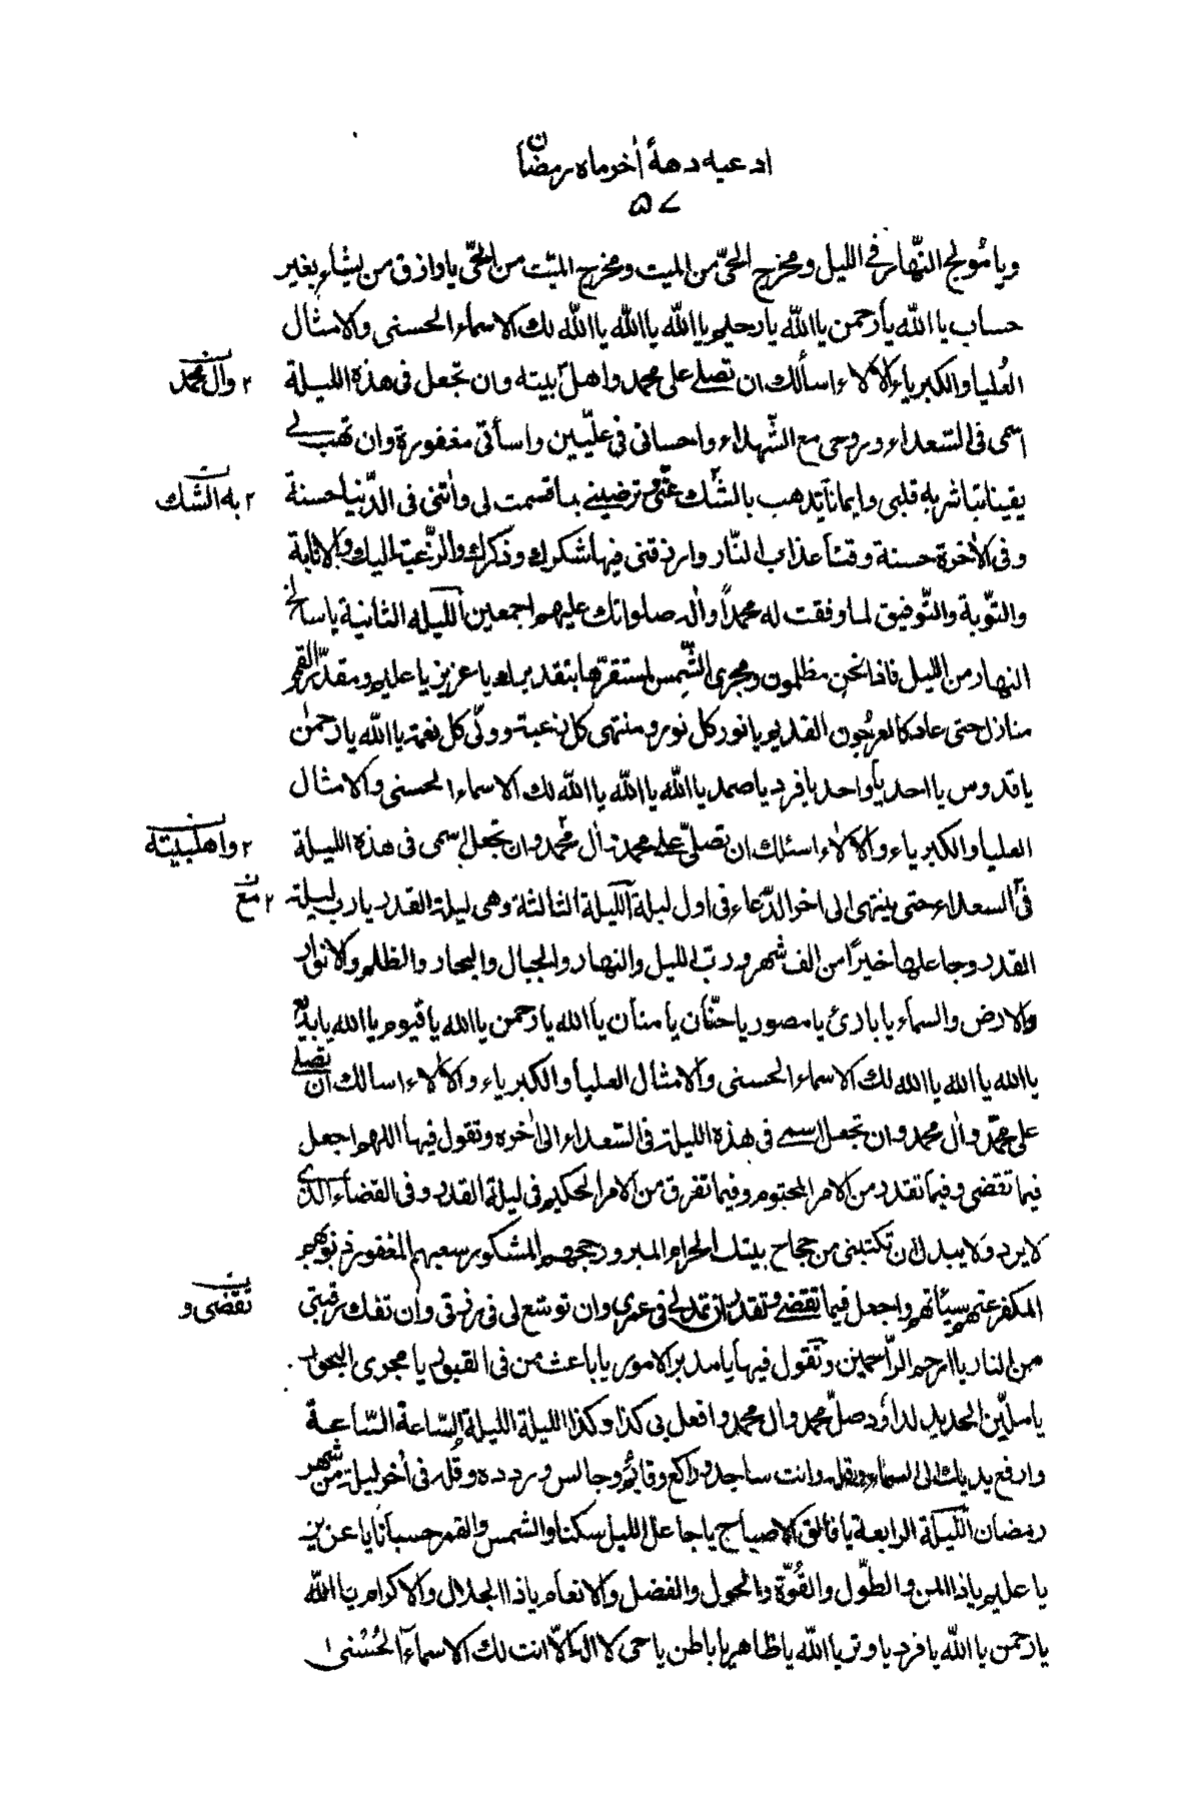 ادعیه دههٔ اٰخر ماه رمضان
۵۷
ویا مُولج النّهار فی اللیل ومخرج الحیّ من المیت ومخرج المیّت من الحیّ یا رازق من یشاء بغیر
حساب یا الله یا رحمن یا الله یا رحیم یا الله یا الله یا الله لك الاسماء الحسنی والامثال
العُلیا والکبریاء والآلاء اسألك ان تصلی علی محمد واهل بیته وان تجعل فی هذه اللیلة
۲ وآل محمد ن
اسمی فی السّعداء وروحی مع الشّهداء واحسانی فی علّیین واسأتی مغفورة وان تهب لی
یقینا تباشر به قلبی وایمانا یذهب بالشّك عنّی وترضینی بما قسمت لی واٰتنی فی الدّنیا حسنة
۲ به الشك ن
وفی الآخرة حسنة وقنا عذاب النّار وارزقنی فیها شکرك وذکرك والرّغبة الیك والانابة
والتّوبة والتّوفیق لما وفقت له محمداً واٰله صلواتك علیهم اجمعین اللیله الثانیة یا سالخ
النهار من اللیل فاذا نحن مظلمون ومجری الشّمس لمستقرّها بتقدیرك یا عزیز یا علیم ومقدّر القمر
منازل حتی عاد کالعرجُون القدیم یا نور کل نور ومنتهی کل رغبة وولّی کل نعمة یا الله یا رحمٰن
یا قدوس یا احد یا واحد یا فرد یا صمد یا الله یا الله یا الله لك الاسماء الحسنی والامثال
العلیا والکبریاء والآلاء اسئلك ان تصلّی علی محمد واٰل محمد وان تجعل اسمی فی هذه اللیلة
۲ واهلبیته ن
فی السعداء حتی ینتهی الی اخر الدّعاء فی اول لیلة اللیلة الثالثة وهی لیلة القدر یا رب لیلة
القدر وجاعلها خیرًا من الف شهر ورب اللیل والنهار والجبال والبحار والظلم والانوار
والارض والسماء یا بارئ یا مصور یا حنّان یا منان یا الله یا رحمن یا الله یا قیوم یا الله یا بدیع
یا الله یا الله یا الله لك الاسماء الحسنی والامثال العلیا والکبریاء والآلاء اسالك ان تصلی
علی محمّد واٰل محمد وان تجعل اسمی فی هذه اللیلة فی السّعداء الی اٰخره وتقول فیها اللهم اجعل
فیما تقضی وفیما تقدر من الامر المحتوم وفیما تفرق من الامر الحکیم فی لیلة القدر وفی القضاء الذی
لا یرد ولا یبدل ان تکتبنی من حجاج بیتك الحرام المبرور حجهم المشکور سعیهم المغفور ذنوبهم
المکفر عنهم سیئاتهم واجعل فیما تقضی وتقدر ان تمد لی فی عمری وان توسّع لی فی رزقی وان تفك رقبتی
تقضی و ن
من النار یا ارحم الرّاحمین وتقول فیها یا مدبر الامور یا باعث من فی القبور یا مجری البحور
یا ملیّن الحدید لداؤد صلّ محمد وال محمد وافعل بی کذا وکذا اللیلة اللیلة السّاعة السّاعة
وارفع یدیك الی السماء وقله وانت ساجد وراکع وقائم وجالس وردده وقُله فی اٰخر لیلة من شهر
رمضان اللّیلة الرابعة یا فالق الاصباح یا جاعل اللیل سکنا والشمس والقمر حسبانًا یا عزیز
یا علیم یا ذا المن والطّول والقُوّة والحول والفضل والانعام یا ذا الجلال والاکرام یا الله
یا رحمن یا الله یا فرد یا وتر یا الله یا ظاهر یا باطن یا حی لا اله الّا انت لك الاسماء الحُسْنی